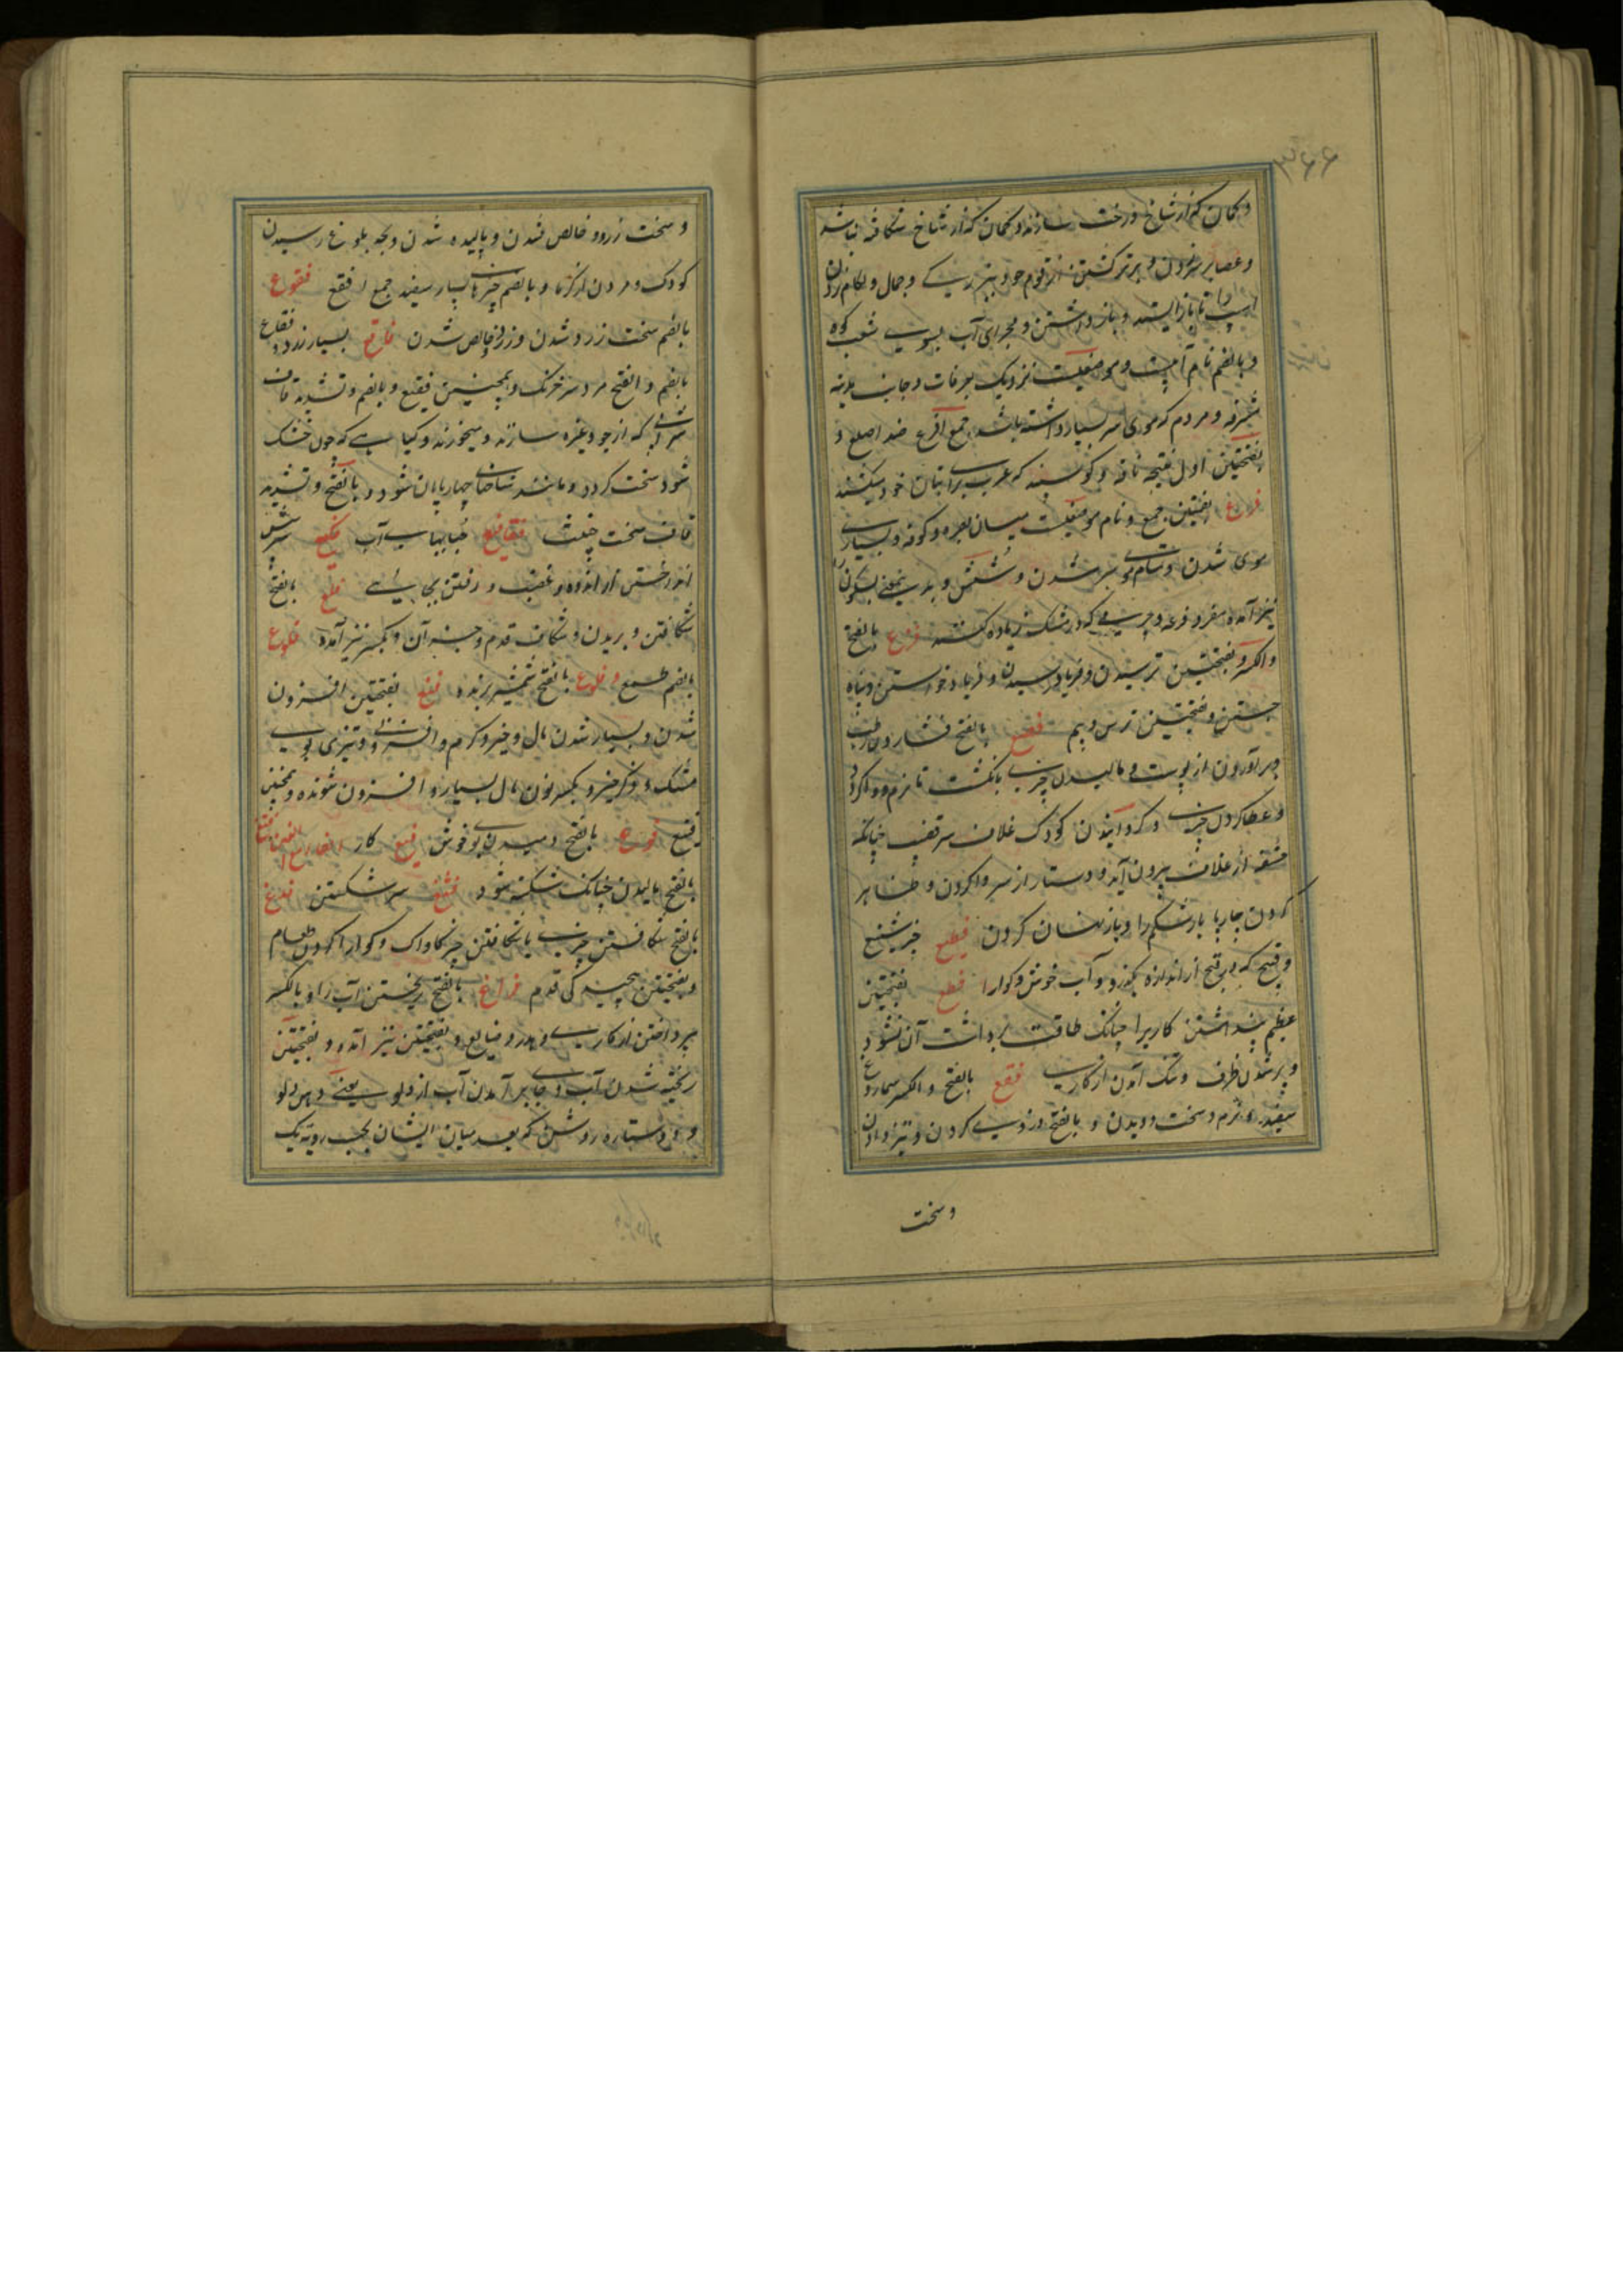 ۳۶۶
و کمان که از شاخ درخت سازند و کمان که از شاخ شکافته نباشد
و عصا بر سر زدن و برتر گشتن از قوم خود و بزرگی و جمال و لگام زدن
اسب را تا باز ایستد و باز داشتن و مجرای آب بسوی شعب کوه
و بالضم نام آبیست و موضعیست نزدیک بعرفات و جانب مدینه
مشرفه و مردم که موی سر بسیار داشته باشد جمع افرع ضد اصلع و
بفتحتین اول نتیجه ناقه و گوسپند که عرب برای بتان خود میکشتند
فراع بضمتین جمع و نام موضعیست میان بصره و کوفه و بسیاری
موی شدن و تمام موی سر شدن و شپش و بدین معنی بسکون را
نیز آمده مفرد فرعه و چرمی که در مشک زیاده کنند فزع بالفتح
والکسر و بفتحتین ترسیدن و فریاد رسیدن و فریاد خواستن و پناه
جستن و بفتحتین ترس و بیم فصع بالفتح فشاردن رطب
و برآوردن از پوست و مالیدن چیزی بانگشت تا نرم و واگردد
و عطا کردن چیزی و گردانیدن کودک غلاف سر قضیب چنانکه
حشفه از غلاف بیرون آید و دستار از سر واکردن و ظاهر
کردن چارپا بار شکم را و باز نهان کردن فظیع چیز شنیع
و قبیح که در قبح از اندازه بگذرد و آب خوش و گوارا فظع بفتحتین
عظیم پنداشتن کاریرا چنانک طاقت برداشت آن نشود
و پر شدن ظرف و تنگ آمدن از کاری فقع بالفتح والکسر سماروغ
سفید نرم و سخت دویدن و بالفتح دزدی کردن و تیز دادن
و سخت
و سخت زرد و خالص شدن و بالیده شدن و بحد بلوغ رسیدن
کودک و مردن از گرما و بالضم چیزهای بسیار سفید جمع افقع فقوع
بالضم سخت زرد شدن و زرد خالص شدن فاقع بسیار زرد فقاع
بالضم و الفتح مرد سرخ رنگ و همچنین فقیع و بالضم و تشدید قاف
شرابی که از جو و غیره سازند و میخورند و گیاهی که چون خشک
شود سخت گردد و مانند شاخهای چهارپایان شود و بالفتح و تشدید
قاف سخت خبیث فقاقیع حبابهای آب فکع سر پیش
انداختن از اندوه و غضب و رفتن بجائی فلع بالفتح
شکافتن و بریدن و شکاف قدم و جز آن و بکسر نیز آمده فلوع
بالضم جمع و فلوع بالفتح شمشیر برنده فنع بفتحتین افزون
شدن و بسیار شدن مال و خیر و کرم و افزونی و تیزی بوی
مشک و ذکر خیر و بکسر نون مال بسیار و افزون شونده و همچنین
فنیع فوح بالفتح دمیدن بوی خوش
بالفتح مالیدن چنانک شکسته شود فثغ سر شکستن فدغ
بالفتح شکافتن چیزی یا شکافتن چیز کاواک و گوارا کردن طعام
و بفتحتین پیچیدگی قدم فراغ بالفتح ریختن آب را و بالکسر
پرداختن از کاری و هدر و ضایع و بفتحتین نیز آمده و بفتحتین
ریخته شدن آب و جای برآمدن آب از دلو یعنی دهن دلو
و دو ستاره روشن که بعد میان ایشان بحسب رویت یک